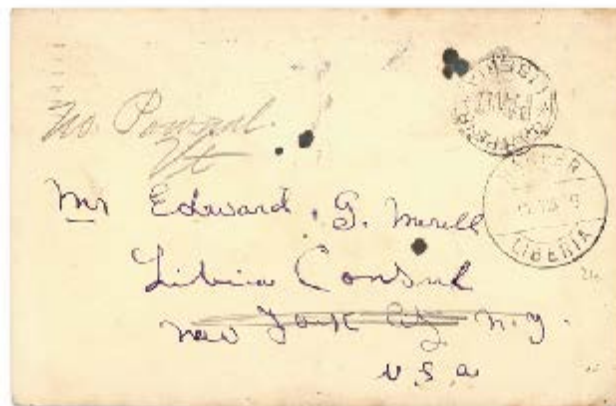 No. Pownal.
Vt
LIBERIA
Mr Edward. G. Merell
Libiria Consul
New York City N.Y.
U.S.A